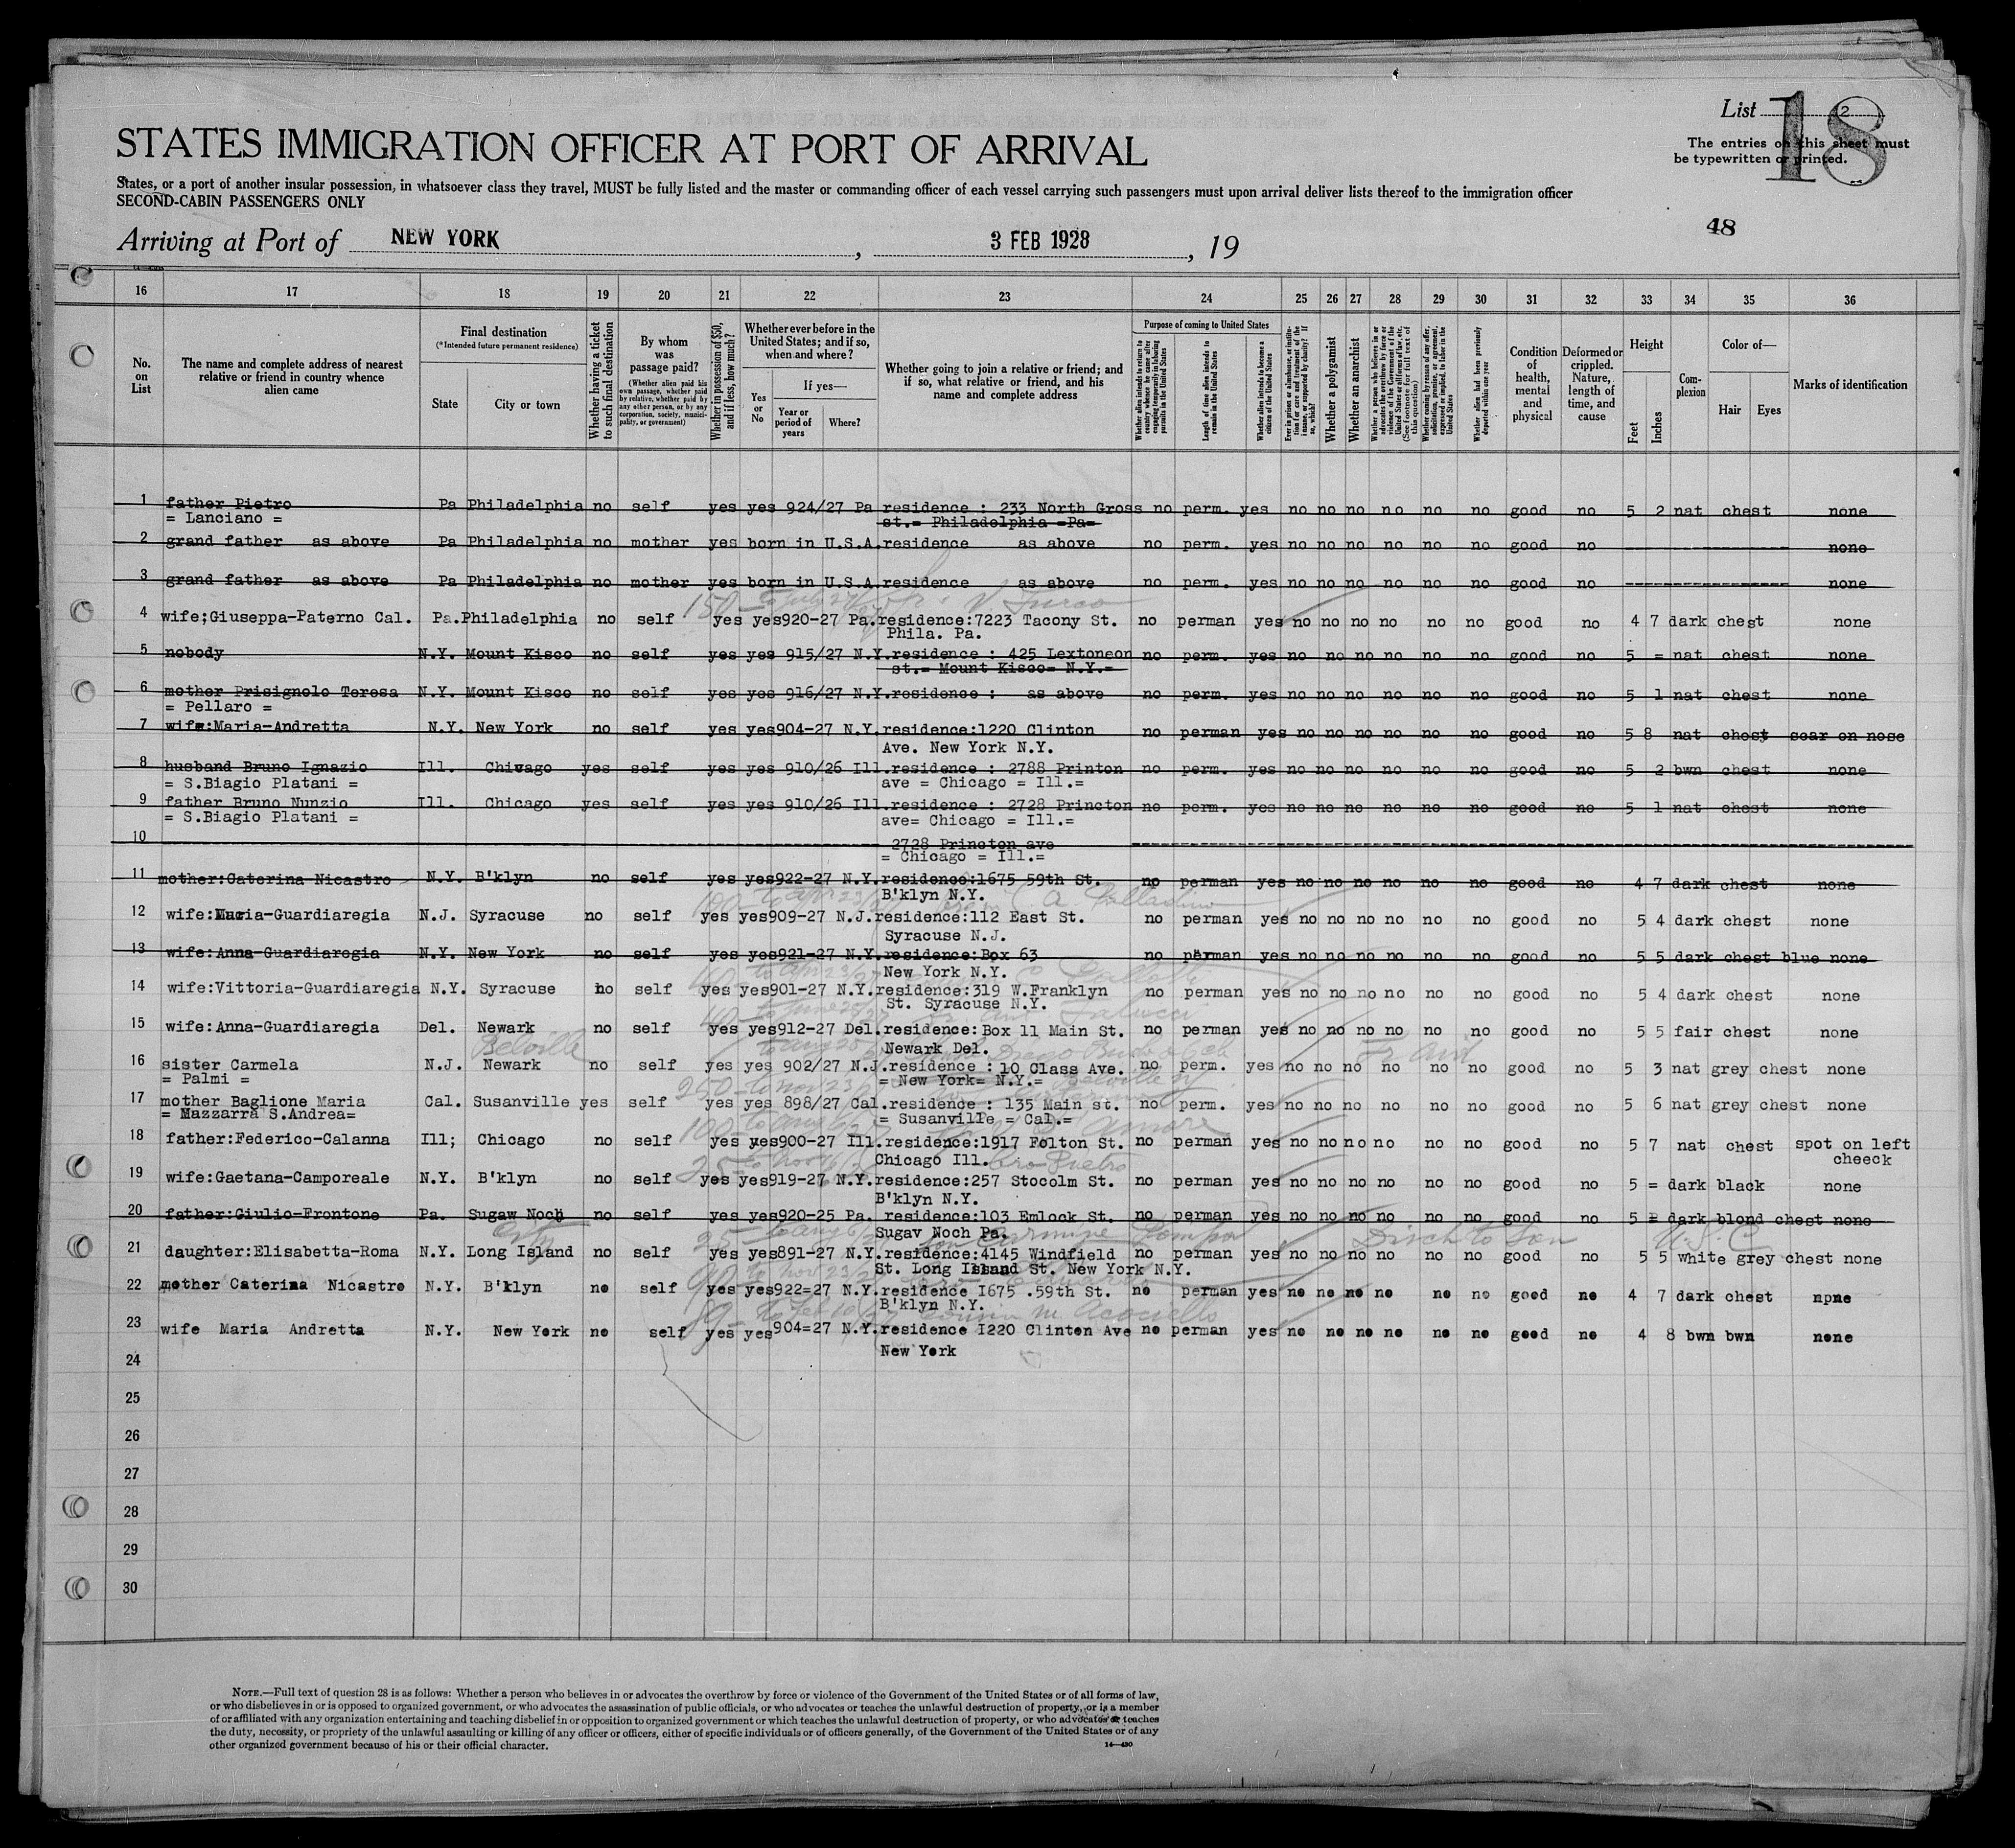 List 2
18
The entries on this sheet must
be typewritten or printed.
STATES IMMIGRATION OFFICER AT PORT OF ARRIVAL
States, or a port of another insular possession, in whatsoever class they travel, MUST be fully listed and the master or commanding officer of each vessel carrying such passengers must upon arrival deliver lists thereof to the immigration officer
SECOND-CABIN PASSENGERS ONLY
48
Arriving at Port of NEW YORK , 3 FEB 1928 , 19
16 17 18 19 20 21 22 23 24 25 26 27 28 29 30 31 32 33 34 35 36
No. on List
The name and complete address of nearest relative or friend in country whence alien came
Final destination
(*Intended future permanent residence)
State
City or town
Whether having a ticket to such final destination
By whom was passage paid?
(Whether alien paid his own passage, whether paid by relative, whether paid by any other person, or by any corporation, society, municipality, or government)
Whether in possession of $50, and if less, how much?
Whether ever before in the United States; and if so, when and where?
Yes or No
If yes—
Year or period of years
Where?
Whether going to join a relative or friend; and if so, what relative or friend, and his name and complete address
Purpose of coming to United States
Whether alien intends to return to country whence he came after engaging temporarily in laboring pursuits in the United States
Length of time alien intends to remain in the United States
Whether alien intends to become a citizen of the United States
Ever in prison or almshouse, or institution for care and treatment of the insane, or supported by charity? If so, which?
Whether a polygamist
Whether an anarchist
Whether a person who believes in or advocates the overthrow by force or violence of the Government of the United States or all forms of law, etc. (See footnote for full text of this question)
Whether coming by reason of any offer, solicitation, promise, or agreement, expressed or implied, to labor in the United States
Whether alien had been previously deported within one year
Condition of health, mental and physical
Deformed or crippled. Nature, length of time, and cause
Height
Feet
Inches
Complexion
Color of—
Hair
Eyes
Marks of identification
1 father Pietro Pa Philadelphia no self yes yes 924/27 Pa residence : 233 North Gross no perm. yes no no no no no no good no 5 2 nat chest none
= Lanciano = st.= Philadelphia =Pa=
2 grand father as above Pa Philadelphia no mother yes born in U.S.A. residence as above no perm. yes no no no no no no good no ---------- none
3 grand father as above Pa Philadelphia no mother yes born in U.S.A. residence as above no perm. yes no no no no no no good no ---------- none
150
4 wife;Giuseppa-Paterno Cal. Pa. Philadelphia no self yes yes920-27 Pa. residence:7223 Tacony St. no perman yes no no no no no no good no 4 7 dark chest none
Phila. Pa.
5 nobody N.Y. Mount Kisco no self yes yes 915/27 N.Y. residence : 425 Lextoneon no perm. yes no no no no no no good no 5 = nat chest none
st.= Mount Kisco= N.Y.=
6 mother Prisignolo Teresa N.Y. Mount Kisco no self yes yes 916/27 N.Y. residence : as above no perm. yes no no no no no no good no 5 1 nat chest none
= Pellaro =
7 wife:Maria-Andretta N.Y. New York no self yes yes904-27 N.Y. residence:1220 Clinton no perman yes no no no no no no good no 5 8 nat chest scar on nose
Ave. New York N.Y.
8 husband Bruno Ignazio Ill. Chivago yes self yes yes 910/26 Ill. residence : 2788 Printon no perm. yes no no no no no no good no 5 2 bwn chest none
= S.Biagio Platani = ave = Chicago = Ill.=
9 father Bruno Nunzio Ill. Chicago yes self yes yes 910/26 Ill. residence : 2728 Princton no perm. yes no no no no no no good no 5 1 nat chest none
= S.Biagio Platani = ave= Chicago = Ill.=
10 ---------- 2728 Princton ave ----------
= Chicago = Ill.=
11 mother:Caterina Nicastro N.Y. B'klyn no self yes yes922-27 N.Y. residence:1675 59th St. no perman yes no no no no no no good no 4 7 dark chest none
B'klyn N.Y.
100
12 wife:Maria-Guardiaregia N.J. Syracuse no self yes yes909-27 N.J. residence:112 East St. no perman yes no no no no no no good no 5 4 dark chest none
Syracuse N.J.
13 wife:Anna-Guardiaregia N.Y. New York no self yes yes921-27 N.Y. residence:Box 63 no perman yes no no no no no no good no 5 5 dark chest blue none
New York N.Y.
14 wife:Vittoria-Guardiaregia N.Y. Syracuse no self yes yes901-27 N.Y. residence:319 W.Franklyn no perman yes no no no no no no good no 5 4 dark chest none
St. Syracuse N.Y.
15 wife:Anna-Guardiaregia Del. Newark no self yes yes912-27 Del. residence:Box 11 Main St. no perman yes no no no no no no good no 5 5 fair chest none
Belville Newark Del.
16 sister Carmela N.J. Newark no self yes yes 902/27 N.J. residence : 10 Class Ave. no perm. yes no no no no no no good no 5 3 nat grey chest none
= Palmi = = New York= N.Y.= Belville NJ
250
17 mother Baglione Maria Cal. Susanville yes self yes yes 898/27 Cal. residence : 135 Main st. no perm. yes no no no no no no good no 5 6 nat grey chest none
= Mazzarra S.Andrea= = Susanville = Cal.=
100
18 father:Federico-Calanna Ill; Chicago no self yes yes900-27 Ill. residence:1917 Folton St. no perman yes no no no no no no good no 5 7 nat chest spot on left
Chicago Ill. cheeck
25 bro Pietro
19 wife:Gaetana-Camporeale N.Y. B'klyn no self yes yes919-27 N.Y. residence:257 Stocolm St. no perman yes no no no no no no good no 5 = dark black none
B'klyn N.Y.
20 father:Giulio-Frontone Pa. Sugaw Noch no self yes yes920-25 Pa. residence:103 Emlock St. no perman yes no no no no no no good no 5 2 dark blond chest none
City Sugav Noch Pa.
25 son Carmine Disch to son
21 daughter:Elisabetta-Roma N.Y. Long Island no self yes yes891-27 N.Y. residence:4145 Windfield no perman yes no no no no no no good no 5 5 white grey chest none
St. Long Island St. New York N.Y.
90
22 mother Caterina Nicastro N.Y. B'klyn no self yes yes922=27 N.Y. residence I675 .59th St. no perman yes no no no no no no good no 4 7 dark chest npne
B'klyn N.Y.
89 cousin
23 wife Maria Andretta N.Y. New York no self yes yes904=27 N.Y. residence I220 Clinton Ave no perman yes no no no no no no good no 4 8 bwn bwn none
New York
24
25
26
27
28
29
30
NOTE.—Full text of question 28 is as follows: Whether a person who believes in or advocates the overthrow by force or violence of the Government of the United States or of all forms of law,
or who disbelieves in or is opposed to organized government, or who advocates the assassination of public officials, or who advocates or teaches the unlawful destruction of property, or is a member
of or affiliated with any organization entertaining and teaching disbelief in or opposition to organized government or which teaches the unlawful destruction of property, or who advocates or teaches
the duty, necessity, or propriety of the unlawful assaulting or killing of any officer or officers, either of specific individuals or of officers generally, of the Government of the United States or of any
other organized government because of his or their official character.
14—430